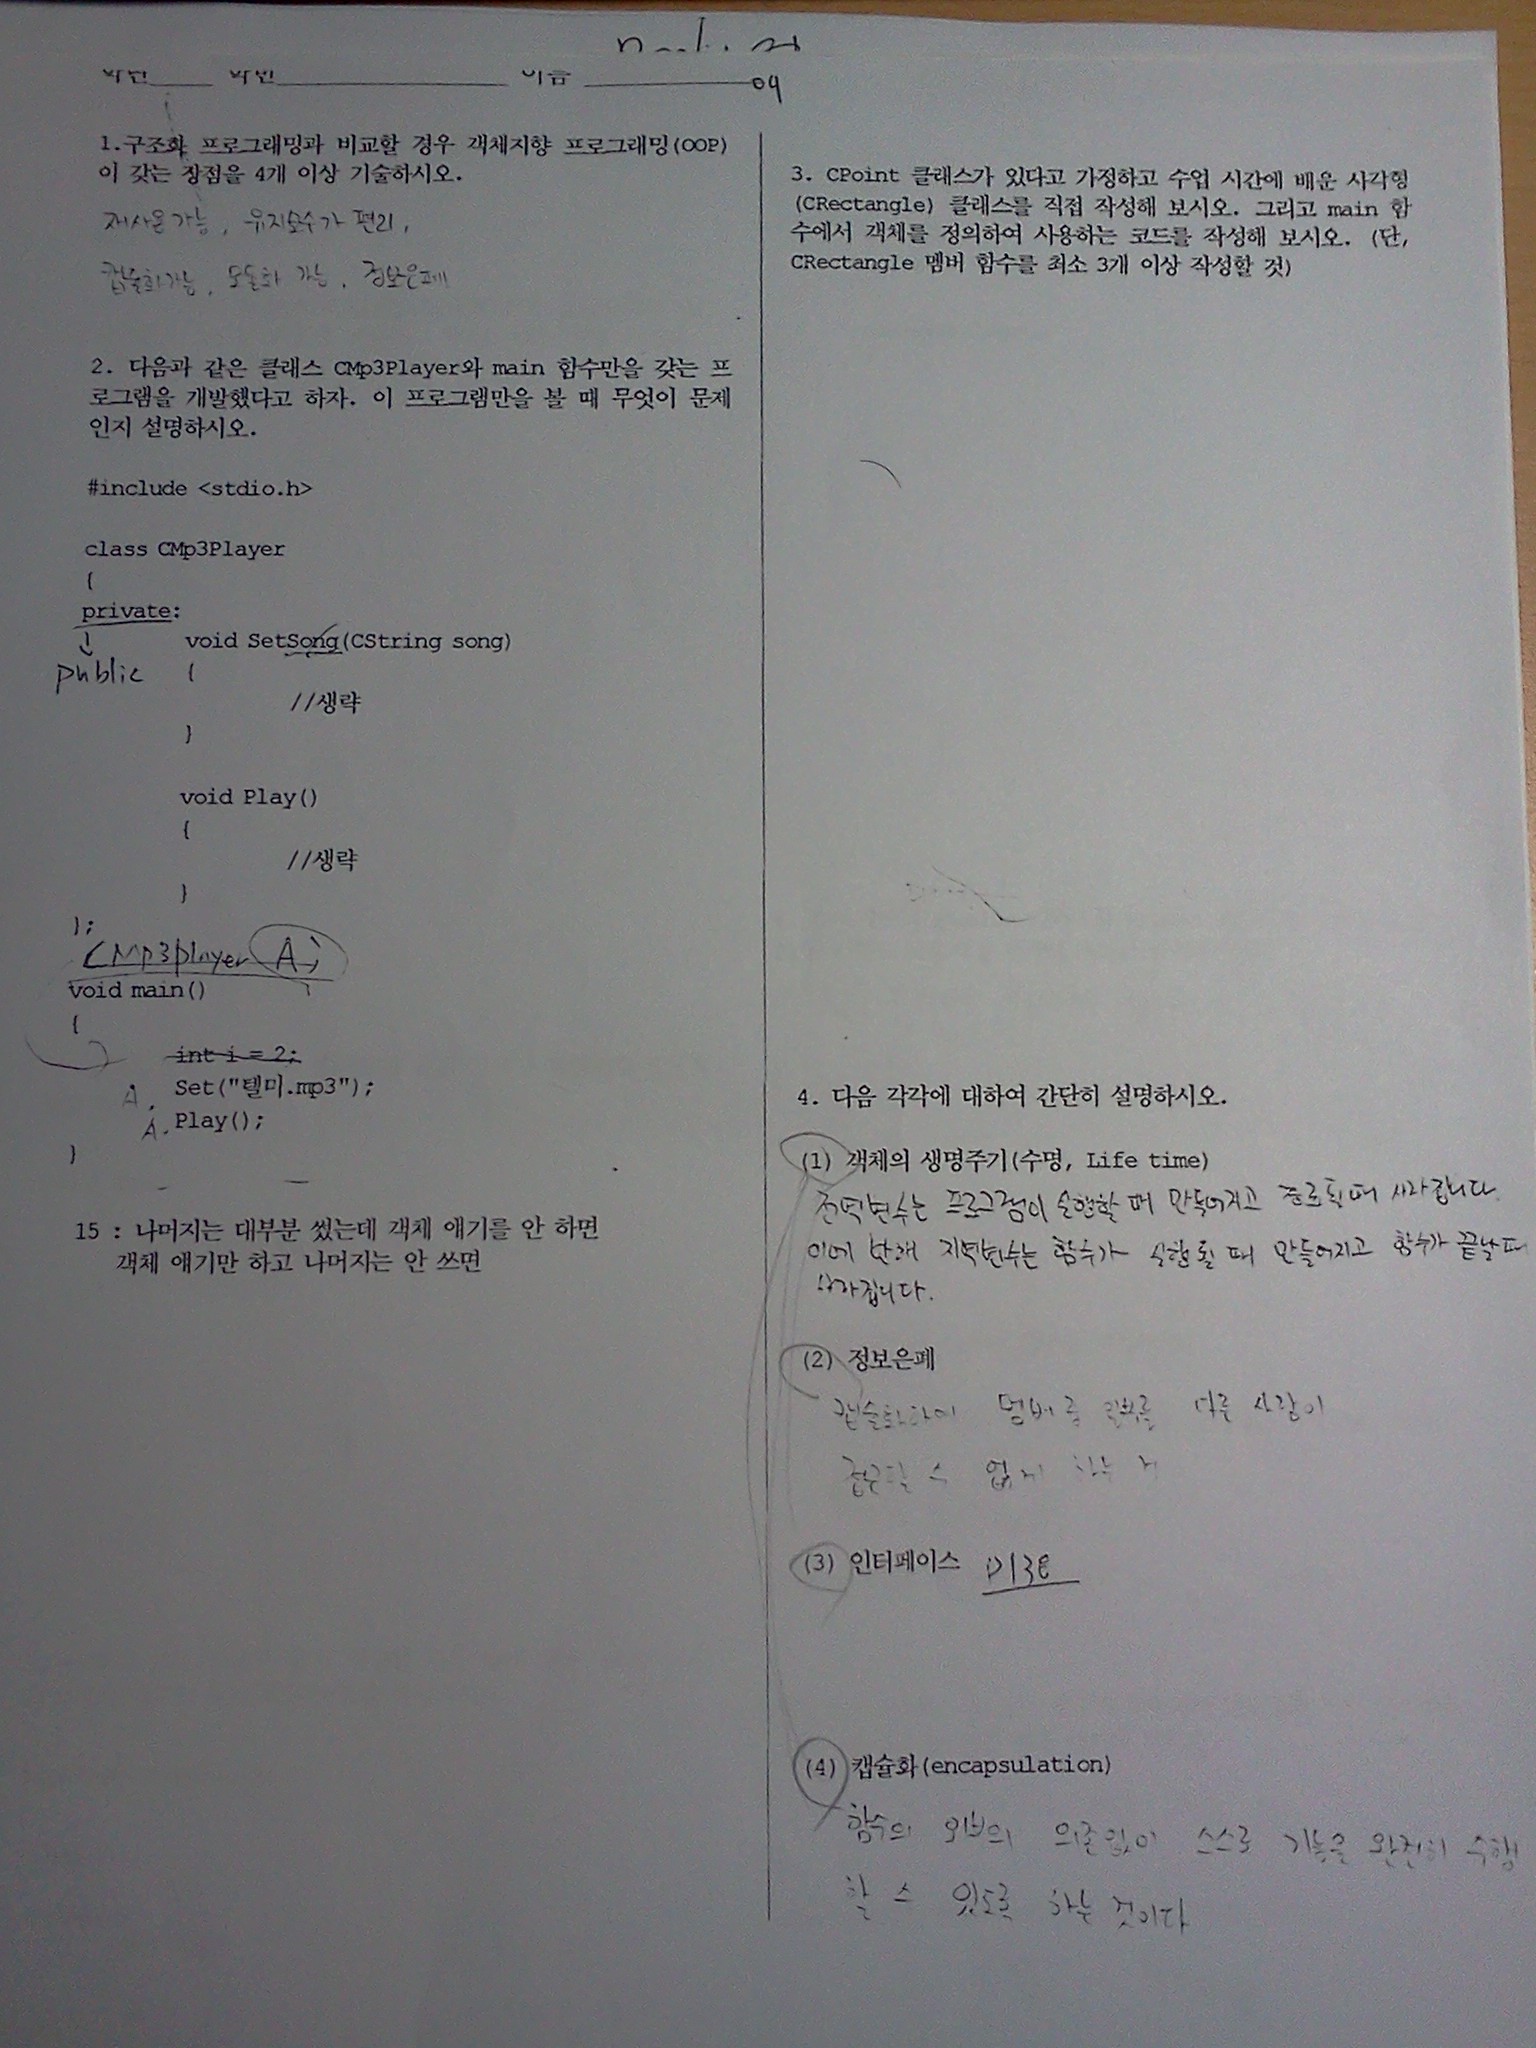 이름
04
1.구조화 프로그래밍과 비교할 경우 객체지향 프로그래밍(OOP)
이 갖는 장점을 4개 이상 기술하시오.
재사용가능, 유지보수가 편리,
캡슐화가능, 모듈화 가능, 정보은폐
2. 다음과 같은 클래스 CMp3Player와 main 함수만을 갖는 프
로그램을 개발했다고 하자. 이 프로그램만을 볼 때 무엇이 문제
인지 설명하시오.
#include <stdio.h>
class CMp3Player
{
private:
void SetSong(CString song)
public
{
//생략
}
void Play()
{
//생략
}
};
CMp3player A;
void main()
{
int i = 2;
A. Set("텔미.mp3");
A. Play();
}
15 : 나머지는 대부분 썼는데 객체 얘기를 안 하면
객체 얘기만 하고 나머지는 안 쓰면
3. CPoint 클래스가 있다고 가정하고 수업 시간에 배운 사각형
(CRectangle) 클래스를 직접 작성해 보시오. 그리고 main 함
수에서 객체를 정의하여 사용하는 코드를 작성해 보시오. (단,
CRectangle 멤버 함수를 최소 3개 이상 작성할 것)
4. 다음 각각에 대하여 간단히 설명하시오.
(1) 객체의 생명주기(수명, Life time)
전역변수는 프로그램이 실행할 때 만들어지고 종료될때 사라집니다.
이에 반해 지역변수는 함수가 실행될 때 만들어지고 함수가 끝날때
사라집니다.
(2) 정보은폐
캡슐화하여 멤버 중 일부를 다른 사람이
접근할 수 없게 하는 거
(3) 인터페이스 P138
(4) 캡슐화(encapsulation)
함수의 외부의 의존없이 스스로 기능을 완전히 수행
할 수 있도록 하는 것이다